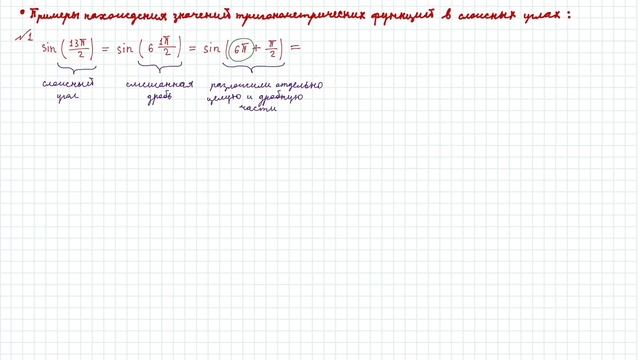 • Примеры нахождения значений тригонометрических функций в сложных углах:
№1 sin(13π/2) = sin(6 1π/2) = sin(6π + π/2) =
сложный угол
смешанная дробь
разложили отдельно целую и дробную части